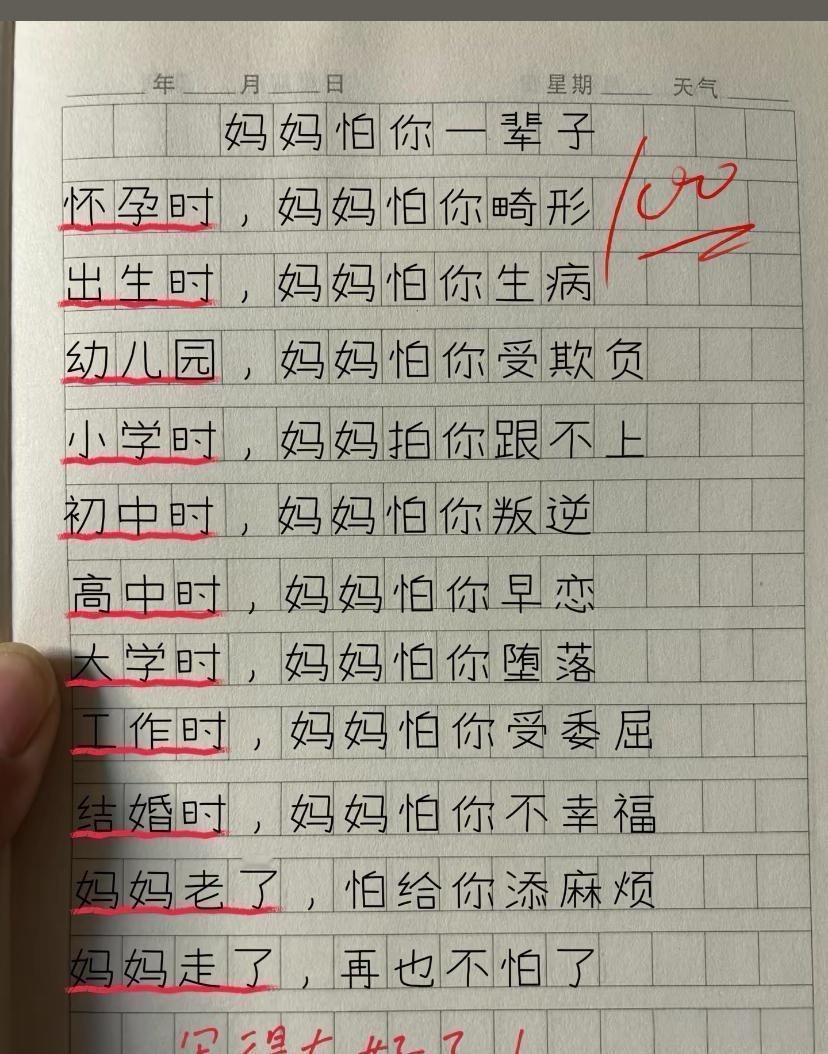 年 月 日 星期 天气
妈妈怕你一辈子
100
怀孕时，妈妈怕你畸形
出生时，妈妈怕你生病
幼儿园，妈妈怕你受欺负
小学时，妈妈拍你跟不上
初中时，妈妈怕你叛逆
高中时，妈妈怕你早恋
大学时，妈妈怕你堕落
工作时，妈妈怕你受委屈
结婚时，妈妈怕你不幸福
妈妈老了，怕给你添麻烦
妈妈走了，再也不怕了